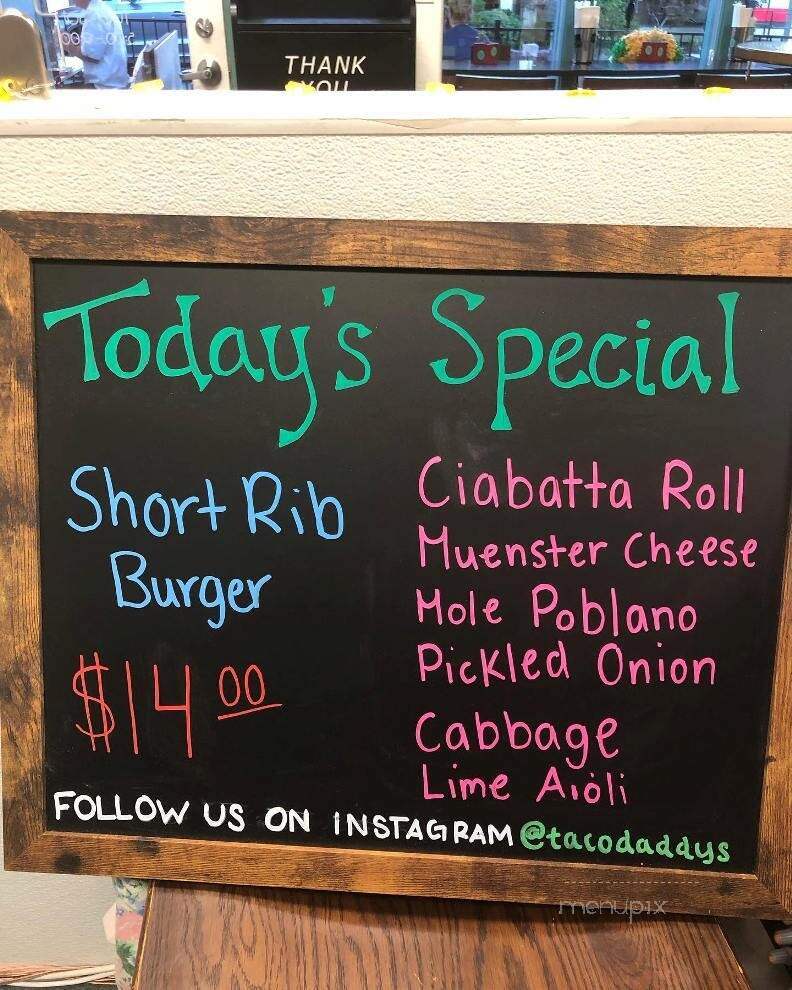 THANK
YOU
Today's Special
Short Rib
Burger
$14.00
Ciabatta Roll
Muenster Cheese
Mole Poblano
Pickled Onion
Cabbage
Lime Aioli
FOLLOW US ON INSTAGRAM @tacodaddys
menupix